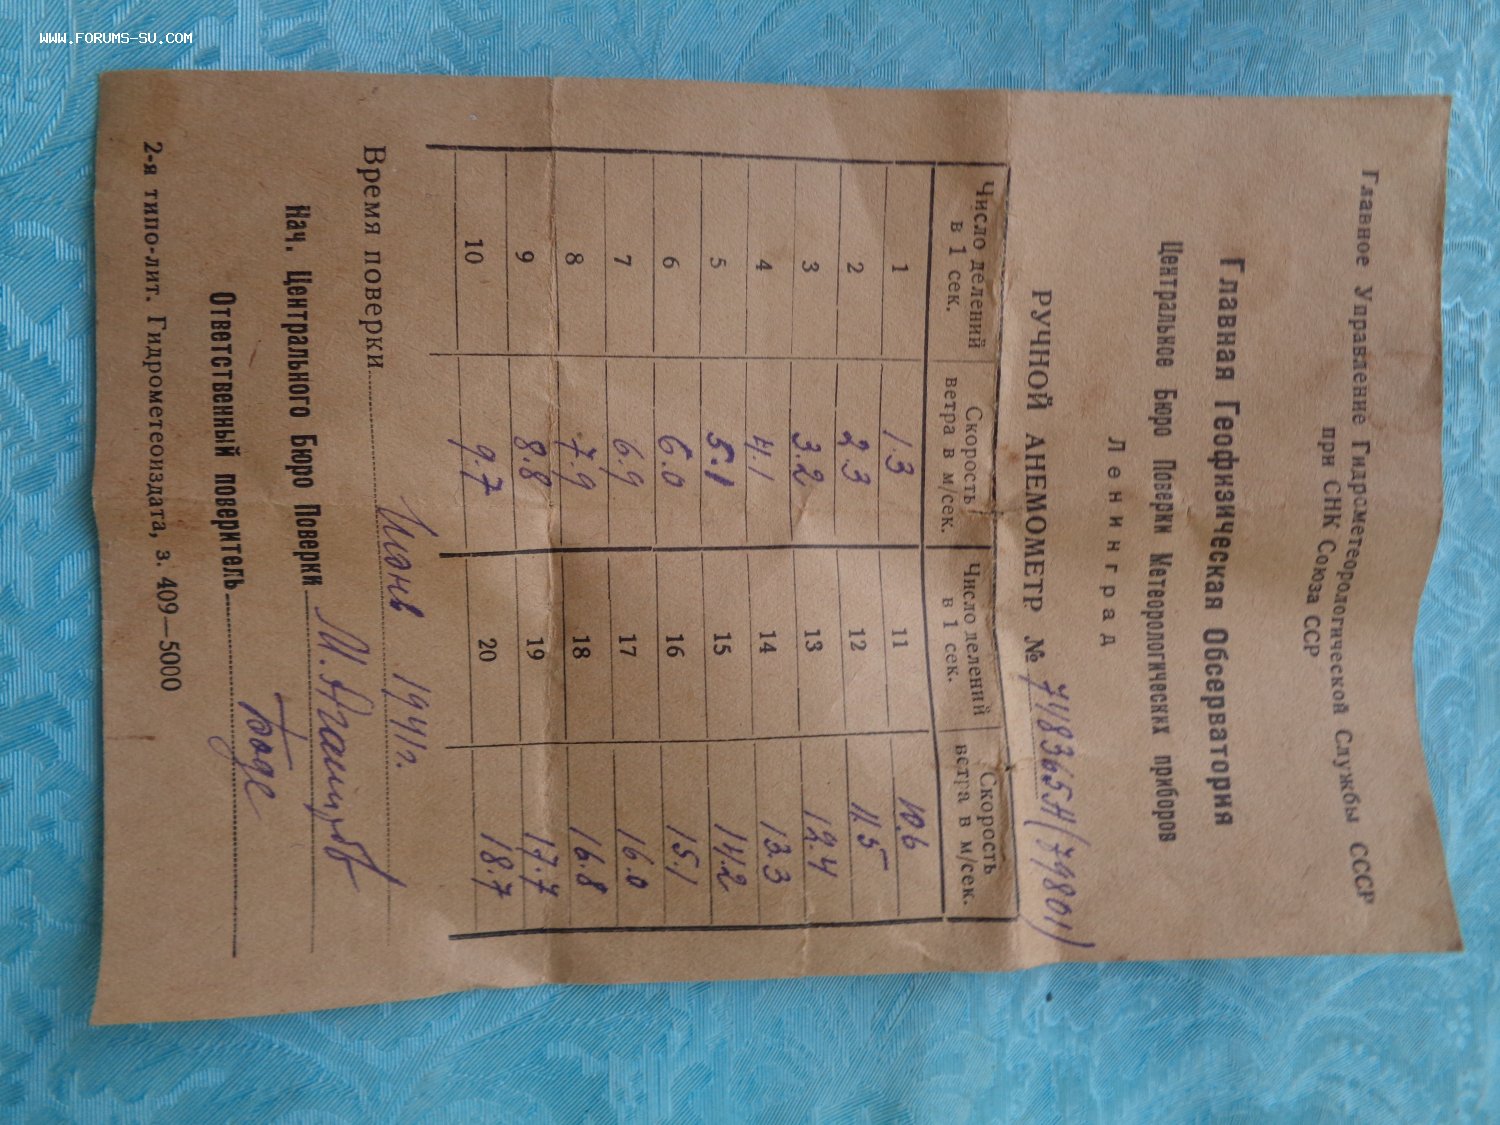 WWW.FORUMS-SU.COM
Главное Управление Гидрометеорологической Службы СССР
при СНК Союза ССР
Главная Геофизическая Обсерватория
Центральное Бюро Поверки Метеорологических приборов
Ленинград
РУЧНОЙ АНЕМОМЕТР №
Число делений в 1 сек. Скорость ветра в м/сек. Число делений в 1 сек. Скорость ветра в м/сек.
1 1.3 11 10.6
2 2.3 12 11.5
3 3.2 13 12.4
4 4.1 14 13.3
5 5.1 15 14.2
6 6.0 16 15.1
7 6.9 17 16.0
8 7.9 18 16.8
9 8.8 19 17.7
10 9.7 20 18.7
Время поверки Июнь 1941г.
Нач. Центрального Бюро Поверки
Ответственный поверитель Боде
2-я типо-лит. Гидрометеоиздата, з. 409—5000